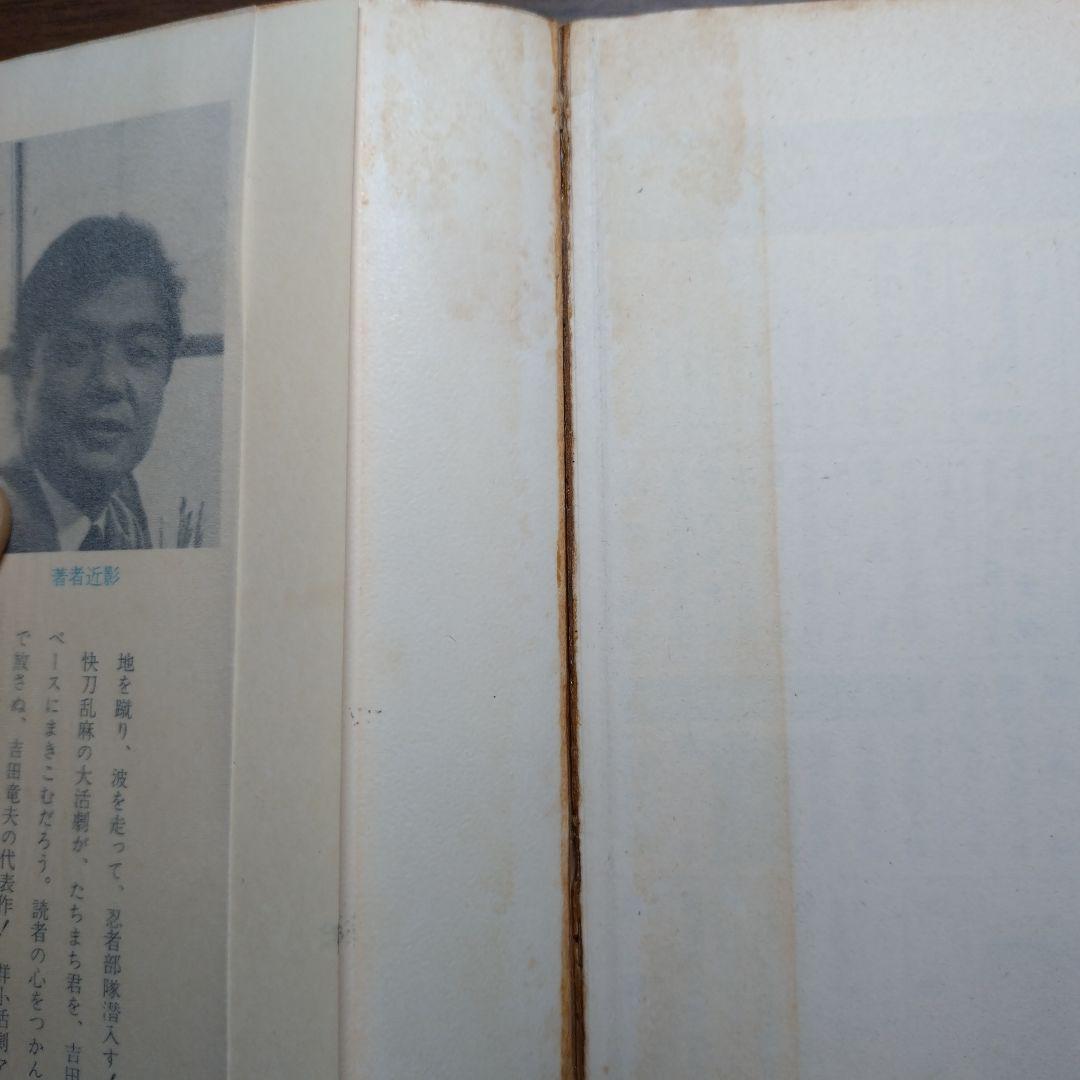 著者近影
地を蹴り、波を走って、忍者部隊潜入す！
快刀乱麻の大活劇が、たちまち君を、吉田
ペースにまきこむだろう。読者の心をつかん
で放さぬ、吉田竜夫の代表作！